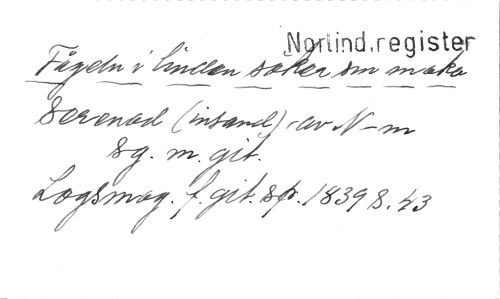 Norlind.register
Fågeln i linden söker sin maka
Serenad (insänd) av N-m
Sg. m. git.
Logsmag. f. git. sp. 1839 s. 43